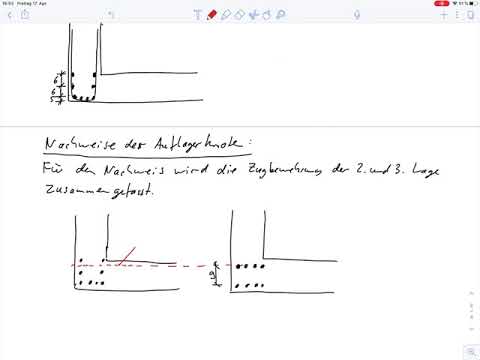 16:53 Freitag 17. Apr.
91 %
6
6
5
Nachweise der Auflagerknoten:
Für den Nachweis wird die Zugbewehrung der 2. und 3. Lage
zusammengefasst.
9